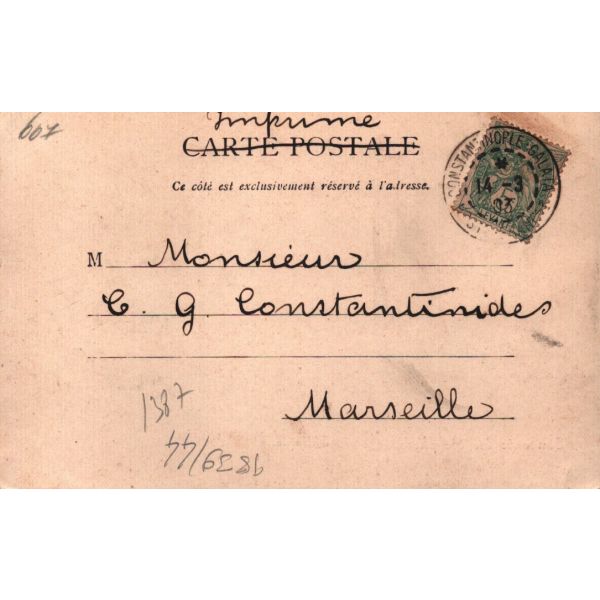 607
Imprimé
CARTE POSTALE
Ce côté est exclusivement réservé à l'adresse.
CONSTANTINOPLE-GALATA
14 -3
03
M Monsieur
C. G. Constantinides
Marseille
1387
9839/44